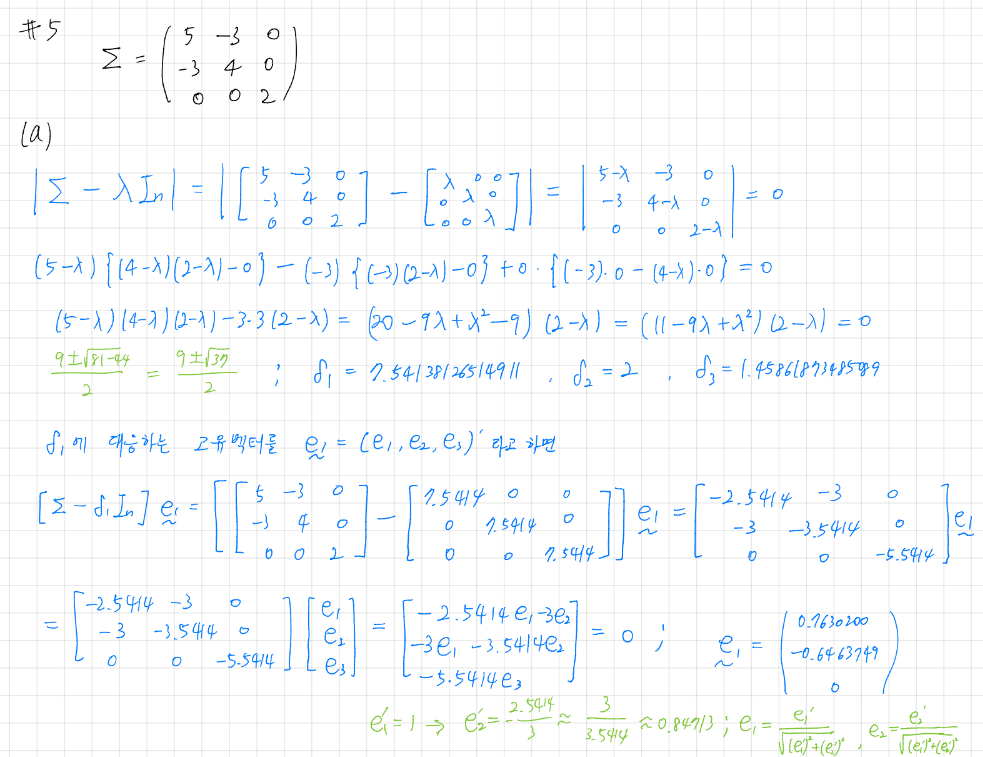 #5
Σ = ( 5 -3 0
-3 4 0
0 0 2 )
(a)
|Σ - λIn| = |[ 5 -3 0 ; -3 4 0 ; 0 0 2 ] - [ λ 0 0 ; 0 λ 0 ; 0 0 λ ]| = | 5-λ -3 0 ; -3 4-λ 0 ; 0 0 2-λ | = 0
(5-λ){(4-λ)(2-λ)-0} - (-3){(-3)(2-λ)-0} + 0·{(-3)·0 - (4-λ)·0} = 0
(5-λ)(4-λ)(2-λ) - 3·3(2-λ) = (20 - 9λ + λ² - 9)(2-λ) = (11 - 9λ + λ²)(2-λ) = 0
(9±√81-44)/2 = (9±√37)/2 ; δ₁ = 7.54138126514911 , δ₂ = 2 , δ₃ = 1.45861873485089
δ₁에 대응하는 고유벡터를 e₁ = (e₁, e₂, e₃)′ 라고 하면
[Σ - δ₁In] e₁ = [[ 5 -3 0 ; -3 4 0 ; 0 0 2 ] - [ 7.5414 0 0 ; 0 7.5414 0 ; 0 0 7.5414 ]] e₁ = [ -2.5414 -3 0 ; -3 -3.5414 0 ; 0 0 -5.5414 ] e₁
= [ -2.5414 -3 0 ; -3 -3.5414 0 ; 0 0 -5.5414 ] [ e₁ ; e₂ ; e₃ ] = [ -2.5414e₁-3e₂ ; -3e₁ -3.5414e₂ ; -5.5414e₃ ] = 0 ; e₁ = ( 0.7630200 ; -0.6463749 ; 0 )
e₁′=1 → e₂′= -2.5414/3 ≈ 3/3.5414 ≈ 0.84713 ; e₁ = e₁′/√(e₁′)²+(e₂′)² , e₂ = e₂′/√(e₁′)²+(e₂′)²